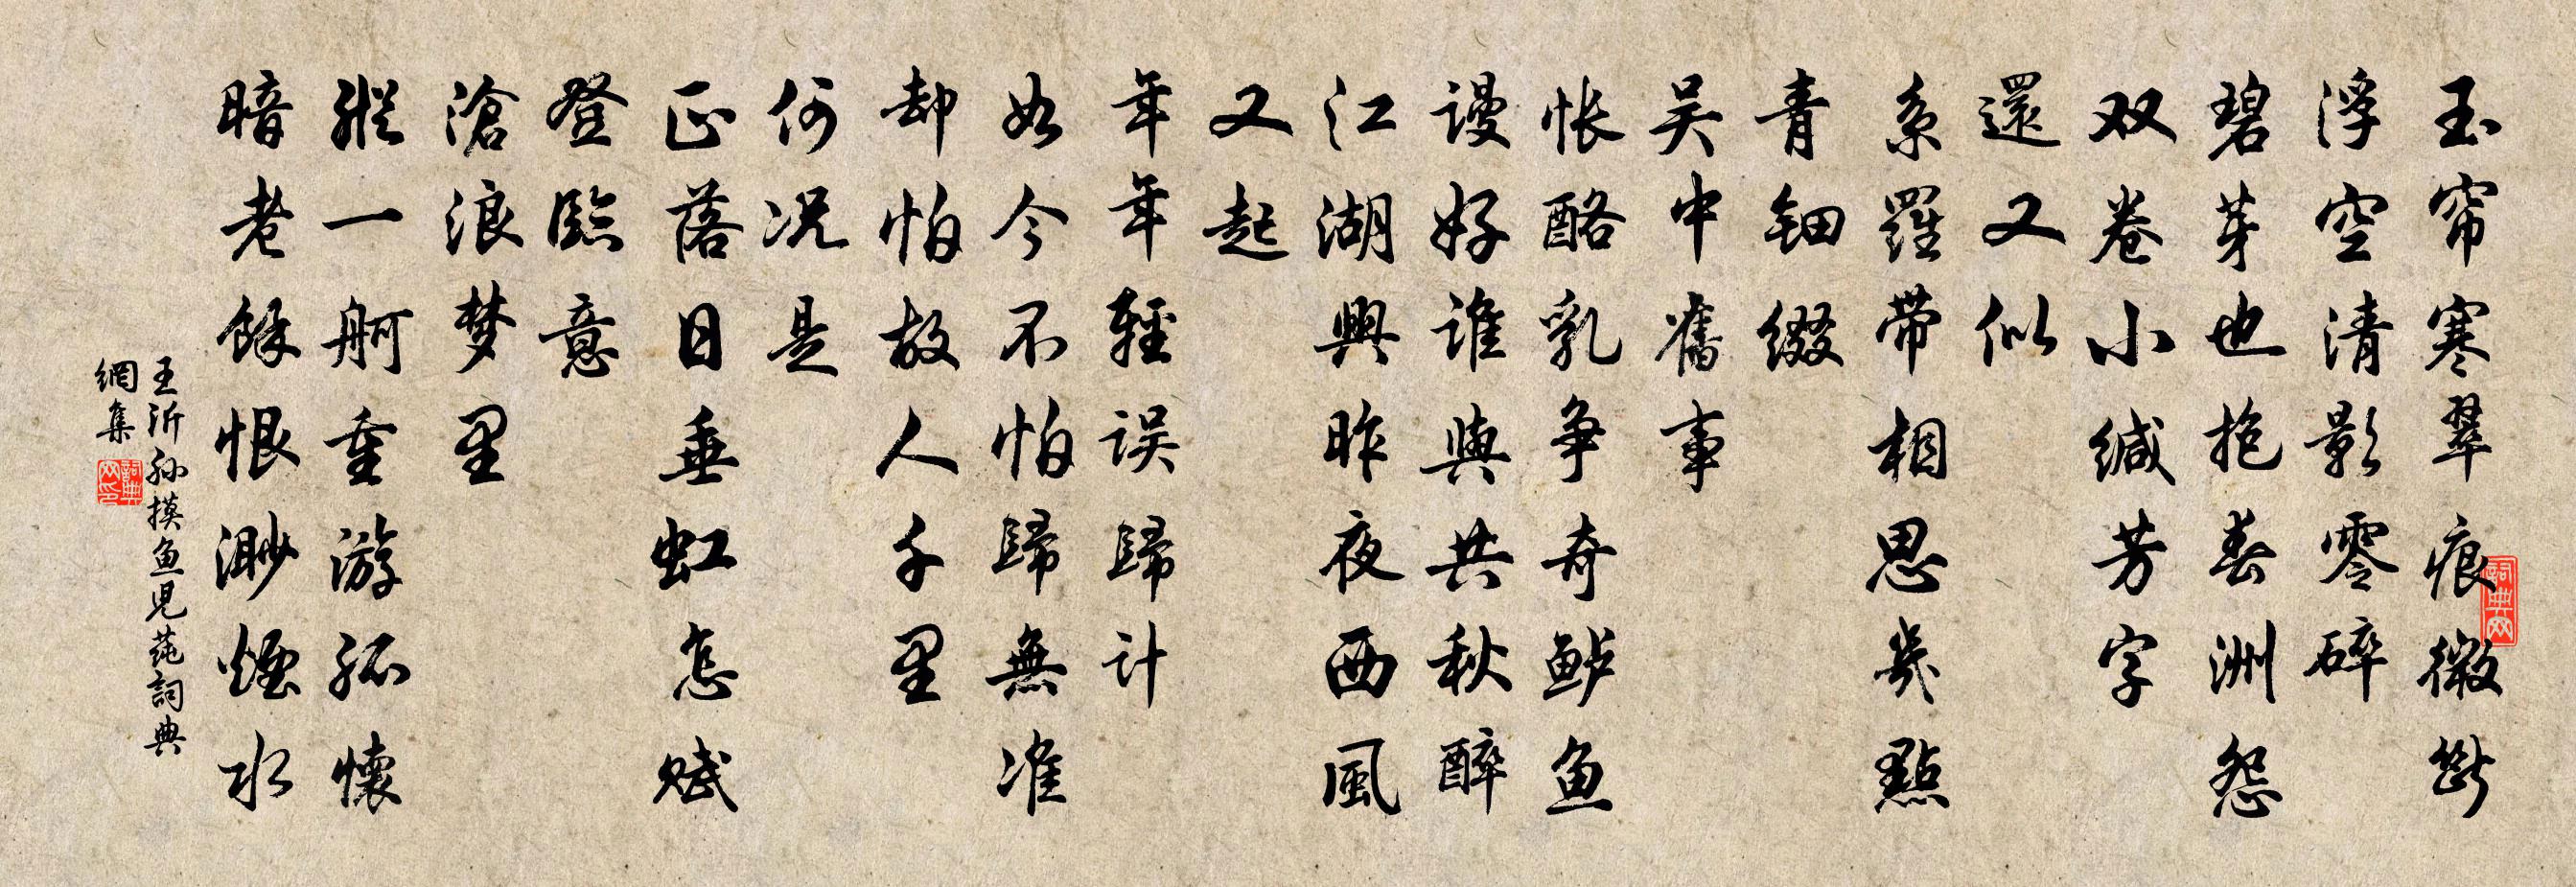 玉帘寒翠痕微断
浮空清影零碎
碧芽也抱春洲怨
双卷小缄芳字
還又似
系羅带相思幾點
青钿缀
吴中舊事
怅酪乳争奇鲈鱼
谩好谁與共秋醉
江湖興昨夜西風
又起
年年輕误歸计
如今不怕歸無准
却怕故人千里
何况是
正落日垂虹怎赋
登臨意
滄浪梦里
縱一舸重游孤懷
暗老餘恨渺煙水
王沂孙摸鱼兒莼詞典
網集
詞典网
詞典网印